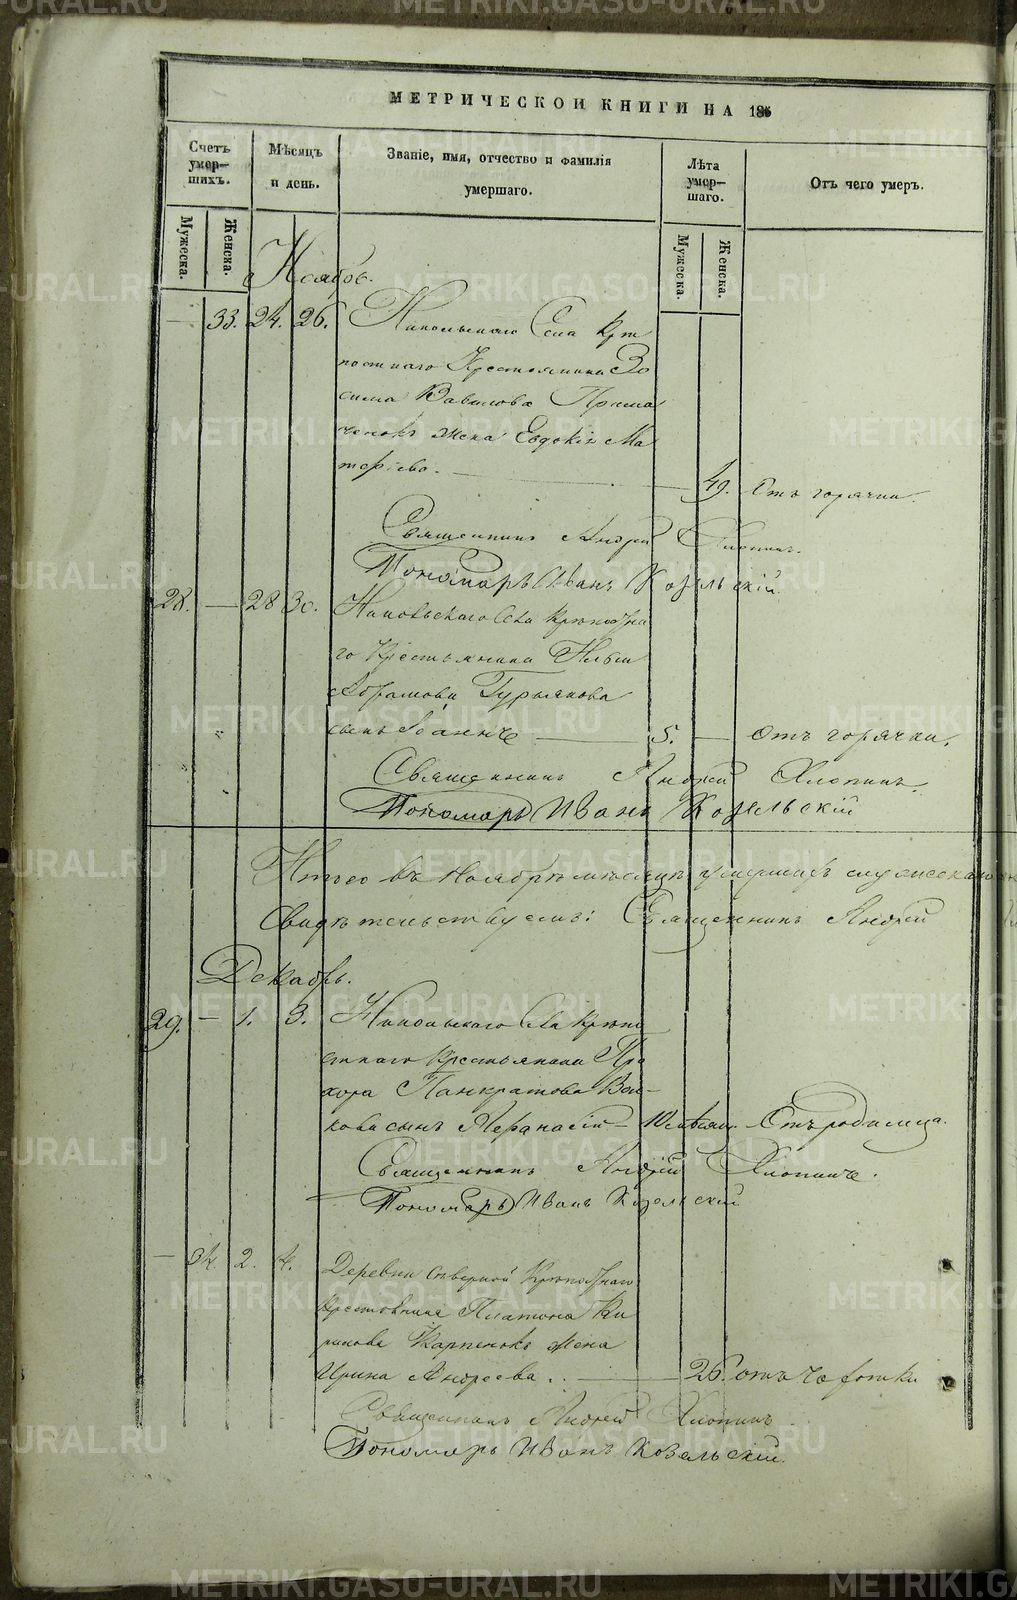 МЕТРИЧЕСКОЙ КНИГИ НА 186
Счетъ умер-шихъ.
Мѣсяцъ и день.
Званіе, имя, отчество и фамилія умершаго.
Лѣта умер-шаго.
Отъ чего умеръ.
Мужеска.
Женска.
Мужеска.
Женска.
Ноябрь.
— 33. 24. 26. Никольскаго Села Крѣ
постнаго Крестьянина Зо
сима Вавилова Прима
ченокъ жена Евдокія Ма
49. Отъ горячки.
Священникъ Андрей Хлопинъ.
Пономарь Иванъ Козельскій
28. — 28 30. Никольскаго Села крѣпостна
го Крестьянина Ильи
Абрамова Гурьянова
сынъ Іоаннъ — 5. — Отъ горячки.
Священникъ Андрей Хлопинъ.
Пономарь Иванъ Козельскій
Итого въ Ноябрѣ мѣсяцѣ умершихъ мужеска
Свидѣтельствуемъ: Священникъ Андрей
Декабрь.
29. — 1. 3. Никольскаго Села крѣпо
стнаго Крестьянина Про
хора Панкратова Вол-
кова сынъ Афанасій — Отъ родимца.
Священникъ Андрей Хлопинъ.
Пономарь Иванъ Козельскій
— 34. 2. 4. Деревни Сѣверной Крѣпостнаго
Крестьянина Платона Ки
рилова Карпенокъ жена
Ирина Андреева. — 26. отъ чахотки
Священникъ Андрей Хлопинъ
Пономарь Иванъ Козельскій.
METRIKI.GASO-URAL.RU